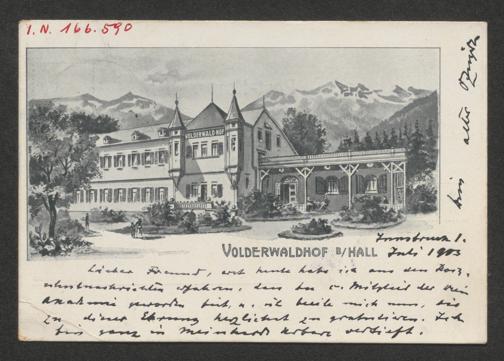 I. N. 166.590
VOLDERWALD-HOF
VOLDERWALDHOF B/HALL
Innsbruck 1.
Juli 1903
Lieber Freund, erst heute habe ich aus den Hoch-
schulnachrichten erfahren, dass du c. Mitglied der Wien
Akademie geworden bist, u. ich beeile mich nun, dir
zu dieser Ehrung herzlichst zu gratulieren. Ich
bin ganz in Meinhards Urbare vertieft.
Dein alter